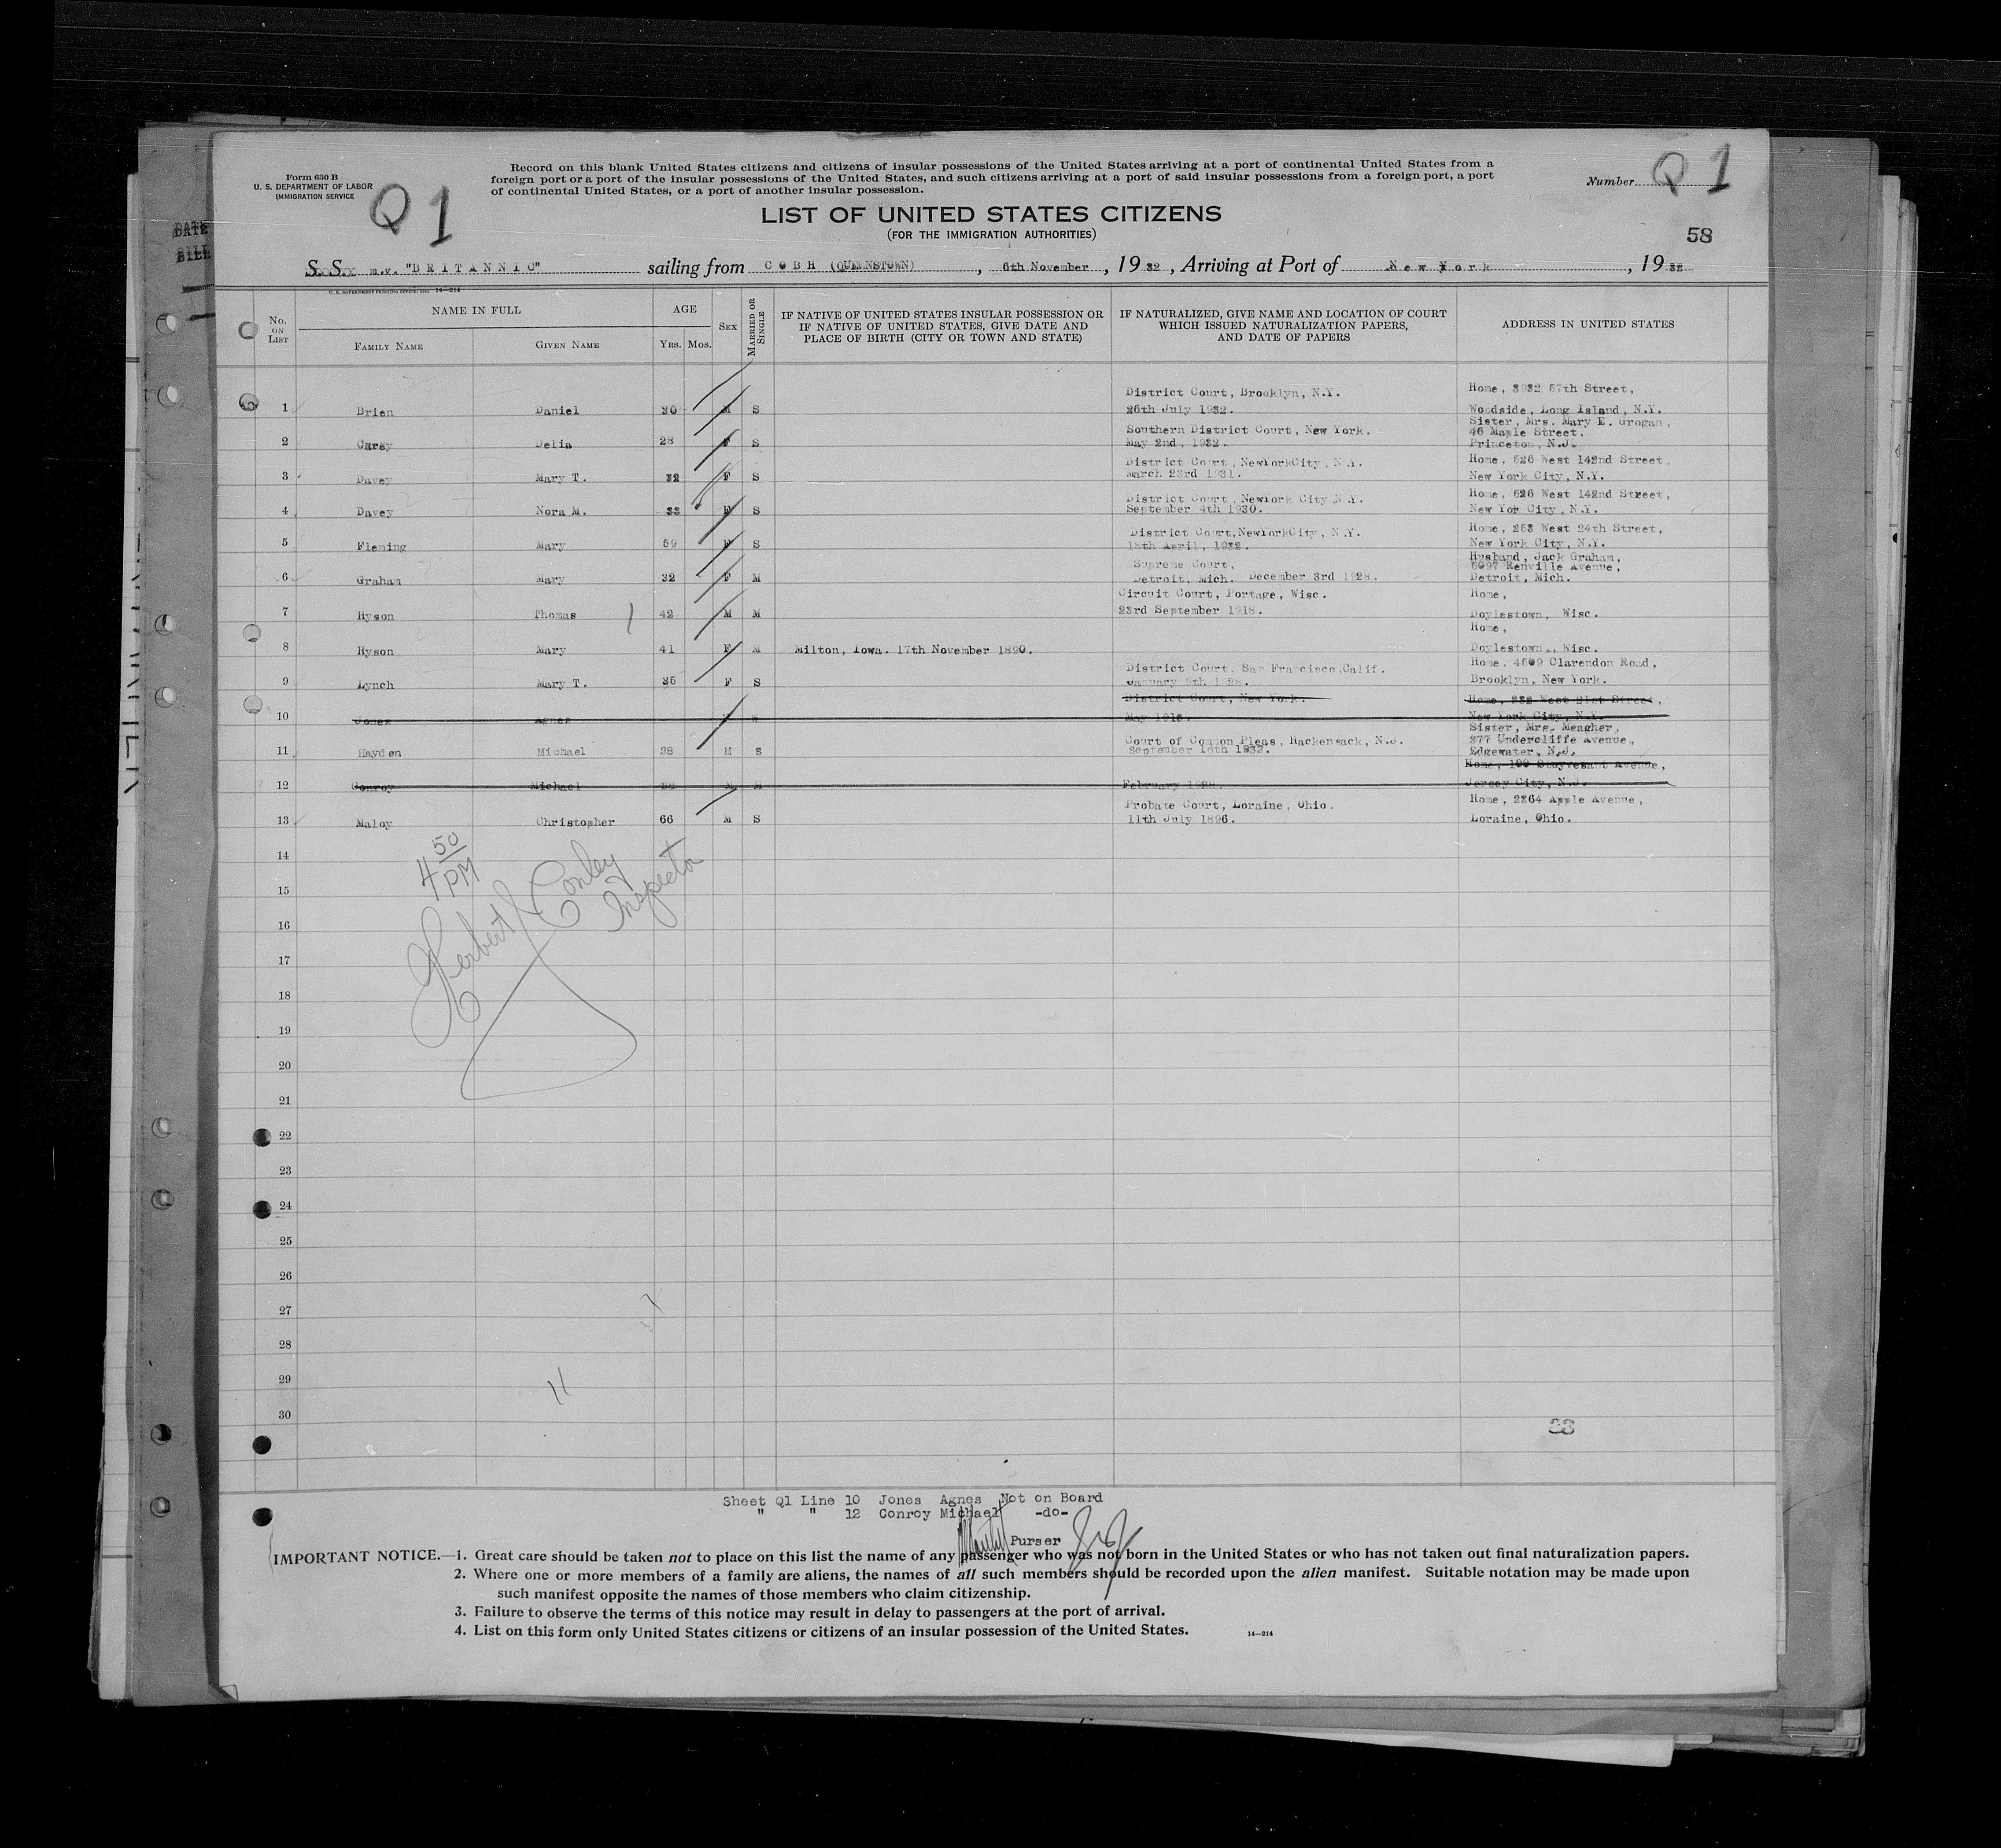 Form 630 B
U. S. DEPARTMENT OF LABOR
IMMIGRATION SERVICE
Q 1
Record on this blank United States citizens and citizens of insular possessions of the United States arriving at a port of continental United States from a
foreign port or a port of the insular possessions of the United States, and such citizens arriving at a port of said insular possessions from a foreign port, a port
of continental United States, or a port of another insular possession.
Number Q 1
LIST OF UNITED STATES CITIZENS
(FOR THE IMMIGRATION AUTHORITIES)
58
DATE
BILL
S. S. m.v. "BRITANNIC" sailing from COBH (QUEENSTOWN), 6th November, 1932, Arriving at Port of New York, 1932
14—214
No. ON LIST
NAME IN FULL
FAMILY NAME GIVEN NAME
AGE
YRS. MOS.
SEX
MARRIED OR SINGLE
IF NATIVE OF UNITED STATES INSULAR POSSESSION OR
IF NATIVE OF UNITED STATES, GIVE DATE AND
PLACE OF BIRTH (CITY OR TOWN AND STATE)
IF NATURALIZED, GIVE NAME AND LOCATION OF COURT
WHICH ISSUED NATURALIZATION PAPERS,
AND DATE OF PAPERS
ADDRESS IN UNITED STATES
District Court, Brooklyn, N.Y. Home, 3932 57th Street,
1 Brien Daniel 30 M S 26th July 1932. Woodside, Long Island, N.Y.
Southern District Court, New York. Sister, Mrs. Mary E. Grogan,
46 Maple Street,
2 Carey Delia 28 F S May 2nd, 1932. Princeton, N.J.
District Court, NewYorkCity, N.Y. Home, 526 West 142nd Street,
3 Davey Mary T. 32 F S March 23rd 1931. New York City, N.Y.
District Court, NewYork City N.Y. Home, 526 West 142nd Street,
4 Davey Nora M. 33 F S September 4th 1930. New Yor City, N.Y.
District Court,NewYorkCity, N.Y. Home, 253 West 24th Street,
5 Fleming Mary 59 F S 18th April, 1932. New York City, N.Y.
Supreme Court, Husband, Jack Graham,
5097 Renville Avenue,
6 Graham Mary 32 F M Detroit, Mich. December 3rd 1928. Detroit, Mich.
Circuit Court, Portage, Wisc. Home,
7 Hyson Thomas 42 M M 23rd September 1918. Doylestown, Wisc.
Home,
8 Hyson Mary 41 F M Milton, Iowa. 17th November 1890. Doylestown., Wisc.
District Court, San Francisco,Calif. Home, 4509 Clarendon Road,
9 Lynch Mary T. 35 F S January 9th 1928. Brooklyn, New York.
District Court, New York. Home, 232 West 21st Street,
10 Jones Agnes May 1918. New York City, N.Y.
Court of Common Pleas, Hackensack, N.J. Sister, Mrs. Meagher,
377 Undercliffe Avenue,
11 Hayden Michael 28 M S September 16th 1932. Edgewater, N.J.
Home, 199 Stuyvesant Avenue,
12 Conroy Michael M February 1928. Jersey City, N.J.
Probate Court, Loraine, Ohio. Home, 2364 Apple Avenue,
13 Maloy Christopher 66 M S 11th July 1896. Loraine, Ohio.
14
15
16
17
18
19
20
21
22
23
24
25
26
27
28
29
30
4 50 PM
Herbert J Conley
Inspector
11
Sheet Q1 Line 10 Jones Agnes Not on Board
" " 12 Conroy Michael -do-
Purser
IMPORTANT NOTICE.—1. Great care should be taken not to place on this list the name of any passenger who was not born in the United States or who has not taken out final naturalization papers.
2. Where one or more members of a family are aliens, the names of all such members should be recorded upon the alien manifest. Suitable notation may be made upon
such manifest opposite the names of those members who claim citizenship.
3. Failure to observe the terms of this notice may result in delay to passengers at the port of arrival.
4. List on this form only United States citizens or citizens of an insular possession of the United States. 14—214